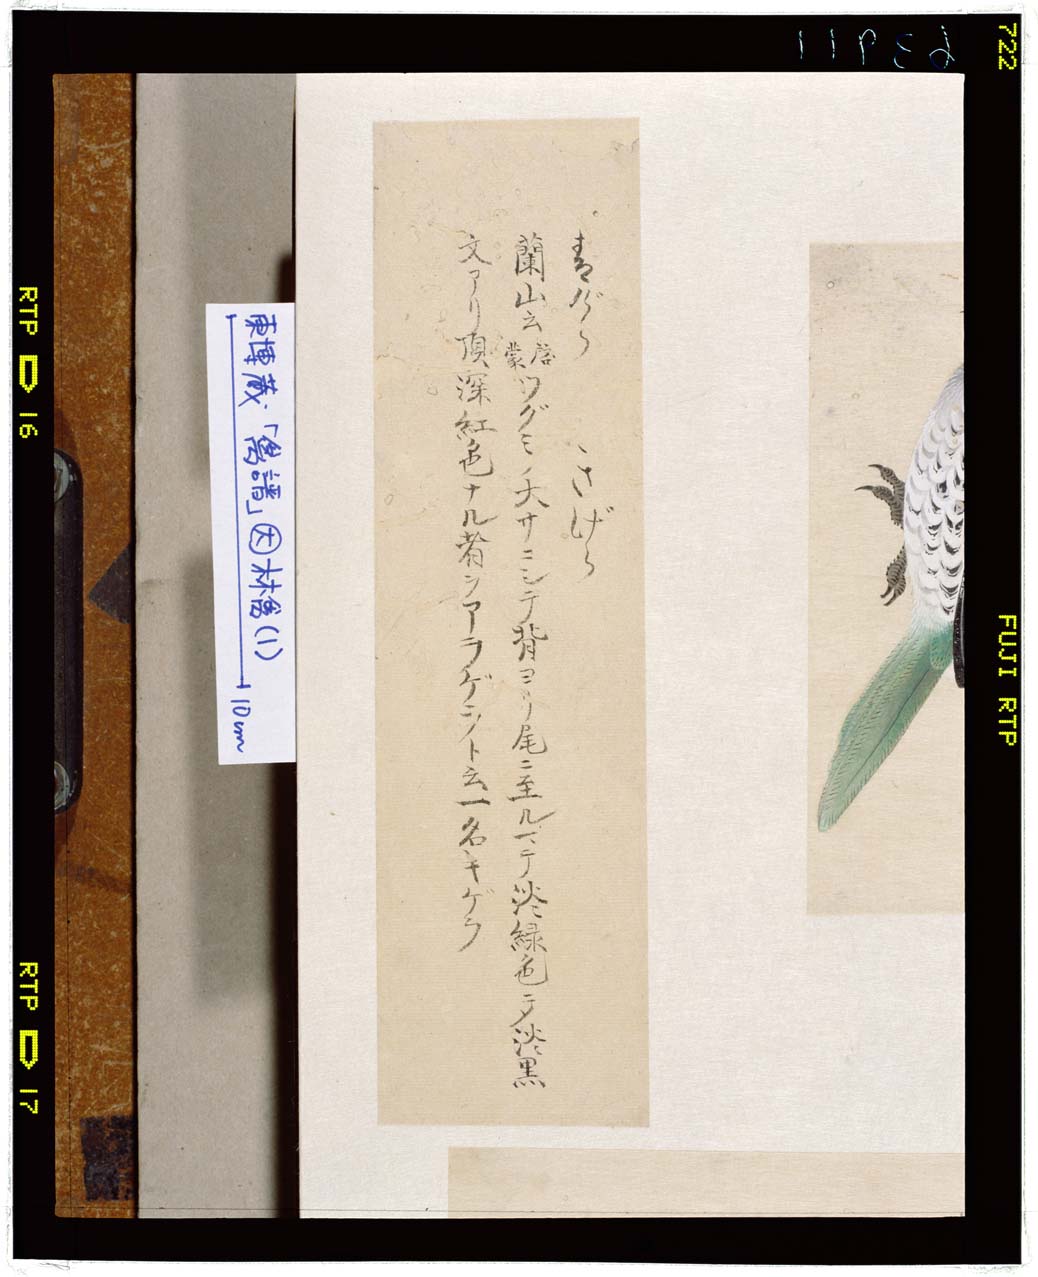 青げら　きさげら
蘭山云啓蒙ツグミノ大サニシテ背ヨリ尾ニ至ルマテ淡緑色ニテ淡黒
文アリ頂深紅色ナル者ヲアラゲラト云一名キゲラ
東博蔵「鳥譜」因林鳥(1)
10cm
63911
722
RTP 16
RTP 17
FUJI RTP